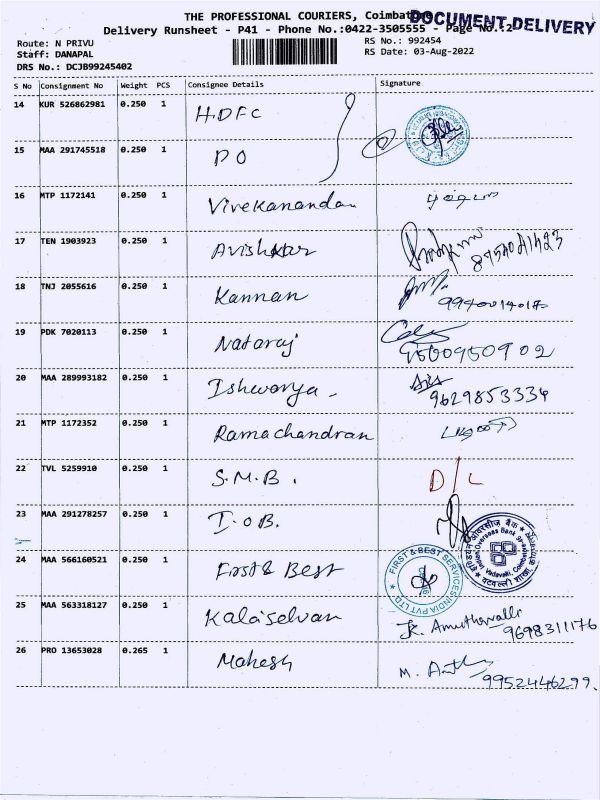 THE PROFESSIONAL COURIERS, Coimbat
DOCUMENT DELIVERY
Delivery Runsheet - P41 - Phone No.:0422-3505555 - Page No.:2
Route: N PRIVU
RS No.: 992454
Staff: DANAPAL
RS Date: 03-Aug-2022
DRS No.: DCJB99245402
S No Consignment No Weight PCS Consignee Details Signature
14 KUR 526862981 0.250 1 HDFC
15 MAA 291745518 0.250 1 DO
16 MTP 1172141 0.250 1 Vivekanandan
17 TEN 1903923 0.250 1 Avishkar
18 TNJ 2055616 0.250 1 Kannan
19 PDK 7020113 0.250 1 Nataraj 9500950902
20 MAA 289993182 0.250 1 Ishwarya 9629853334
21 MTP 1172352 0.250 1 Ramachandran
22 TVL 5259910 0.250 1 S.M.B. D/L
23 MAA 291278257 0.250 1 I.O.B.
Indian Overseas Bank
24 MAA 566160521 0.250 1 First & Best
FIRST & BEST SERVICES INDIA PVT LTD
25 MAA 563318127 0.250 1 Kalaiselvan K. Amuthavalli 9698311176
26 PRO 13653028 0.265 1 Mahesh M. 9952446299.